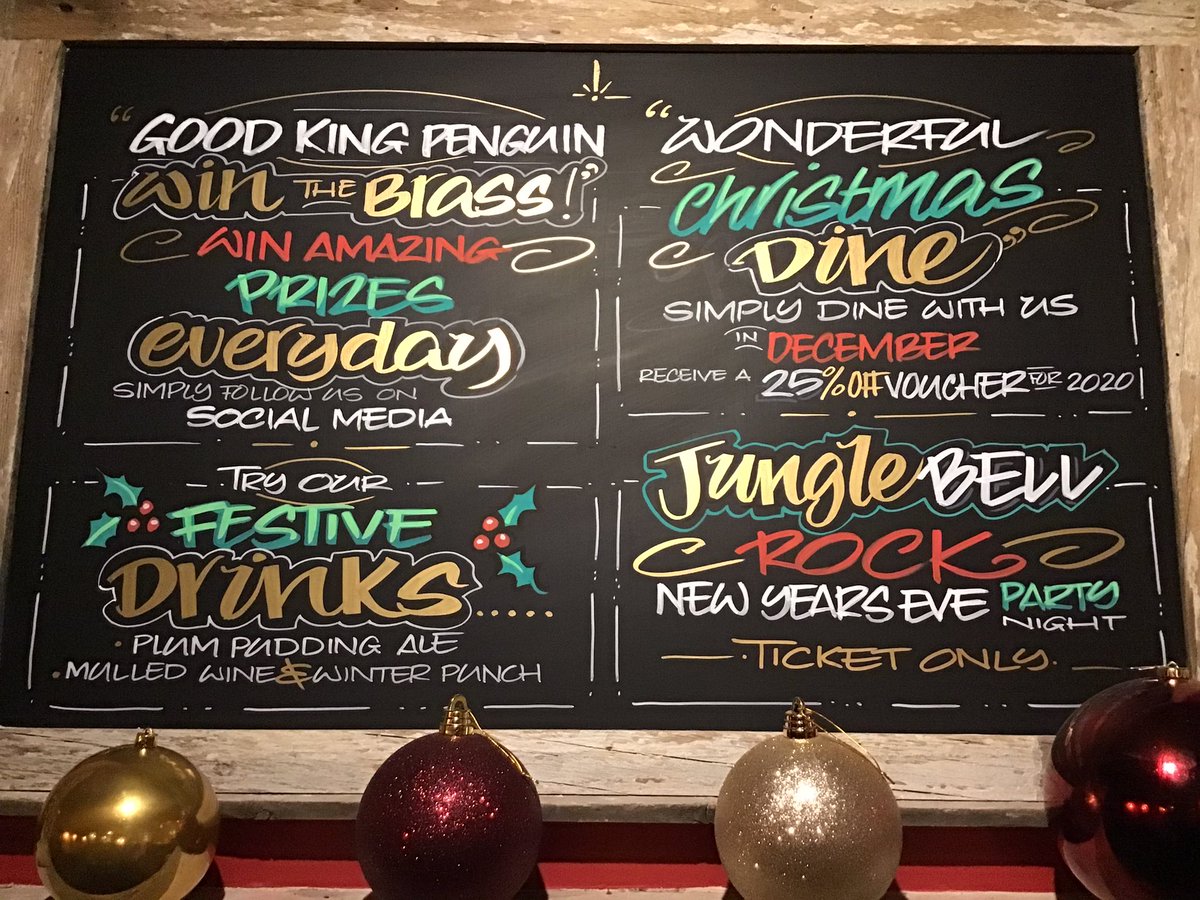 “GOOD KING PENGUIN
Win THE Brass!”
WIN AMAZING
PRIZES
everyday
SIMPLY FOLLOW US ON
SOCIAL MEDIA
TRY OUR
FESTIVE
Drinks.....
·PLUM PUDDING ALE
·MULLED WINE & WINTER PUNCH
“WONDERFUL
Christmas
Dine”
SIMPLY DINE WITH US
IN DECEMBER
RECEIVE A 25% Off VOUCHER FOR 2020
Jungle BELL
ROCK
NEW YEARS EVE PARTY NIGHT
·TICKET ONLY·